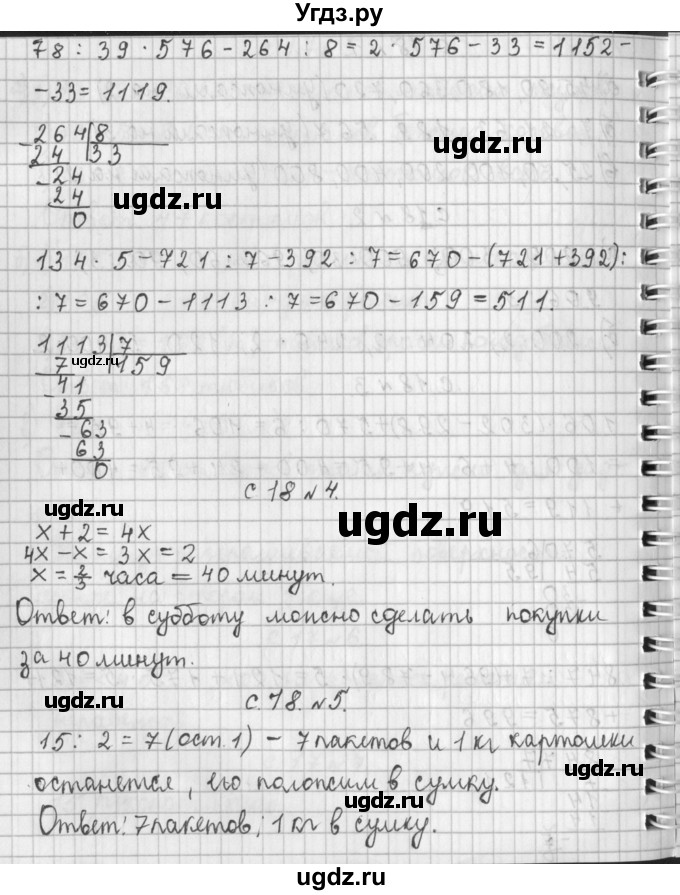 Угдз.ру
78 : 39 · 576 - 264 : 8 = 2 · 576 - 33 = 1152 -
- 33 = 1119.
264 8
24 33
- 24
24
0
ugdz.ru
ugdz.ru
134 · 5 - 721 : 7 - 392 : 7 = 670 - (721 + 392) :
: 7 = 670 - 1113 : 7 = 670 - 159 = 511.
1113 7
7 159
ugdz.ru
- 41
35
- 63
63
0
с 18 № 4.
ugdz.ru
ugdz.ru
x + 2 = 4x
4x - x = 3x = 2
x = 2/3 часа = 40 минут.
Ответ: в субботу можно сделать покупки
за 40 минут.
ugdz.ru
с. 18. № 5.
15 : 2 = 7 (ост. 1) - 7 пакетов и 1 кг картошки
ugdz.ru
останется, его положим в сумку.
ugdz.ru
Ответ: 7 пакетов; 1 кг в сумку.
ugdz.ru